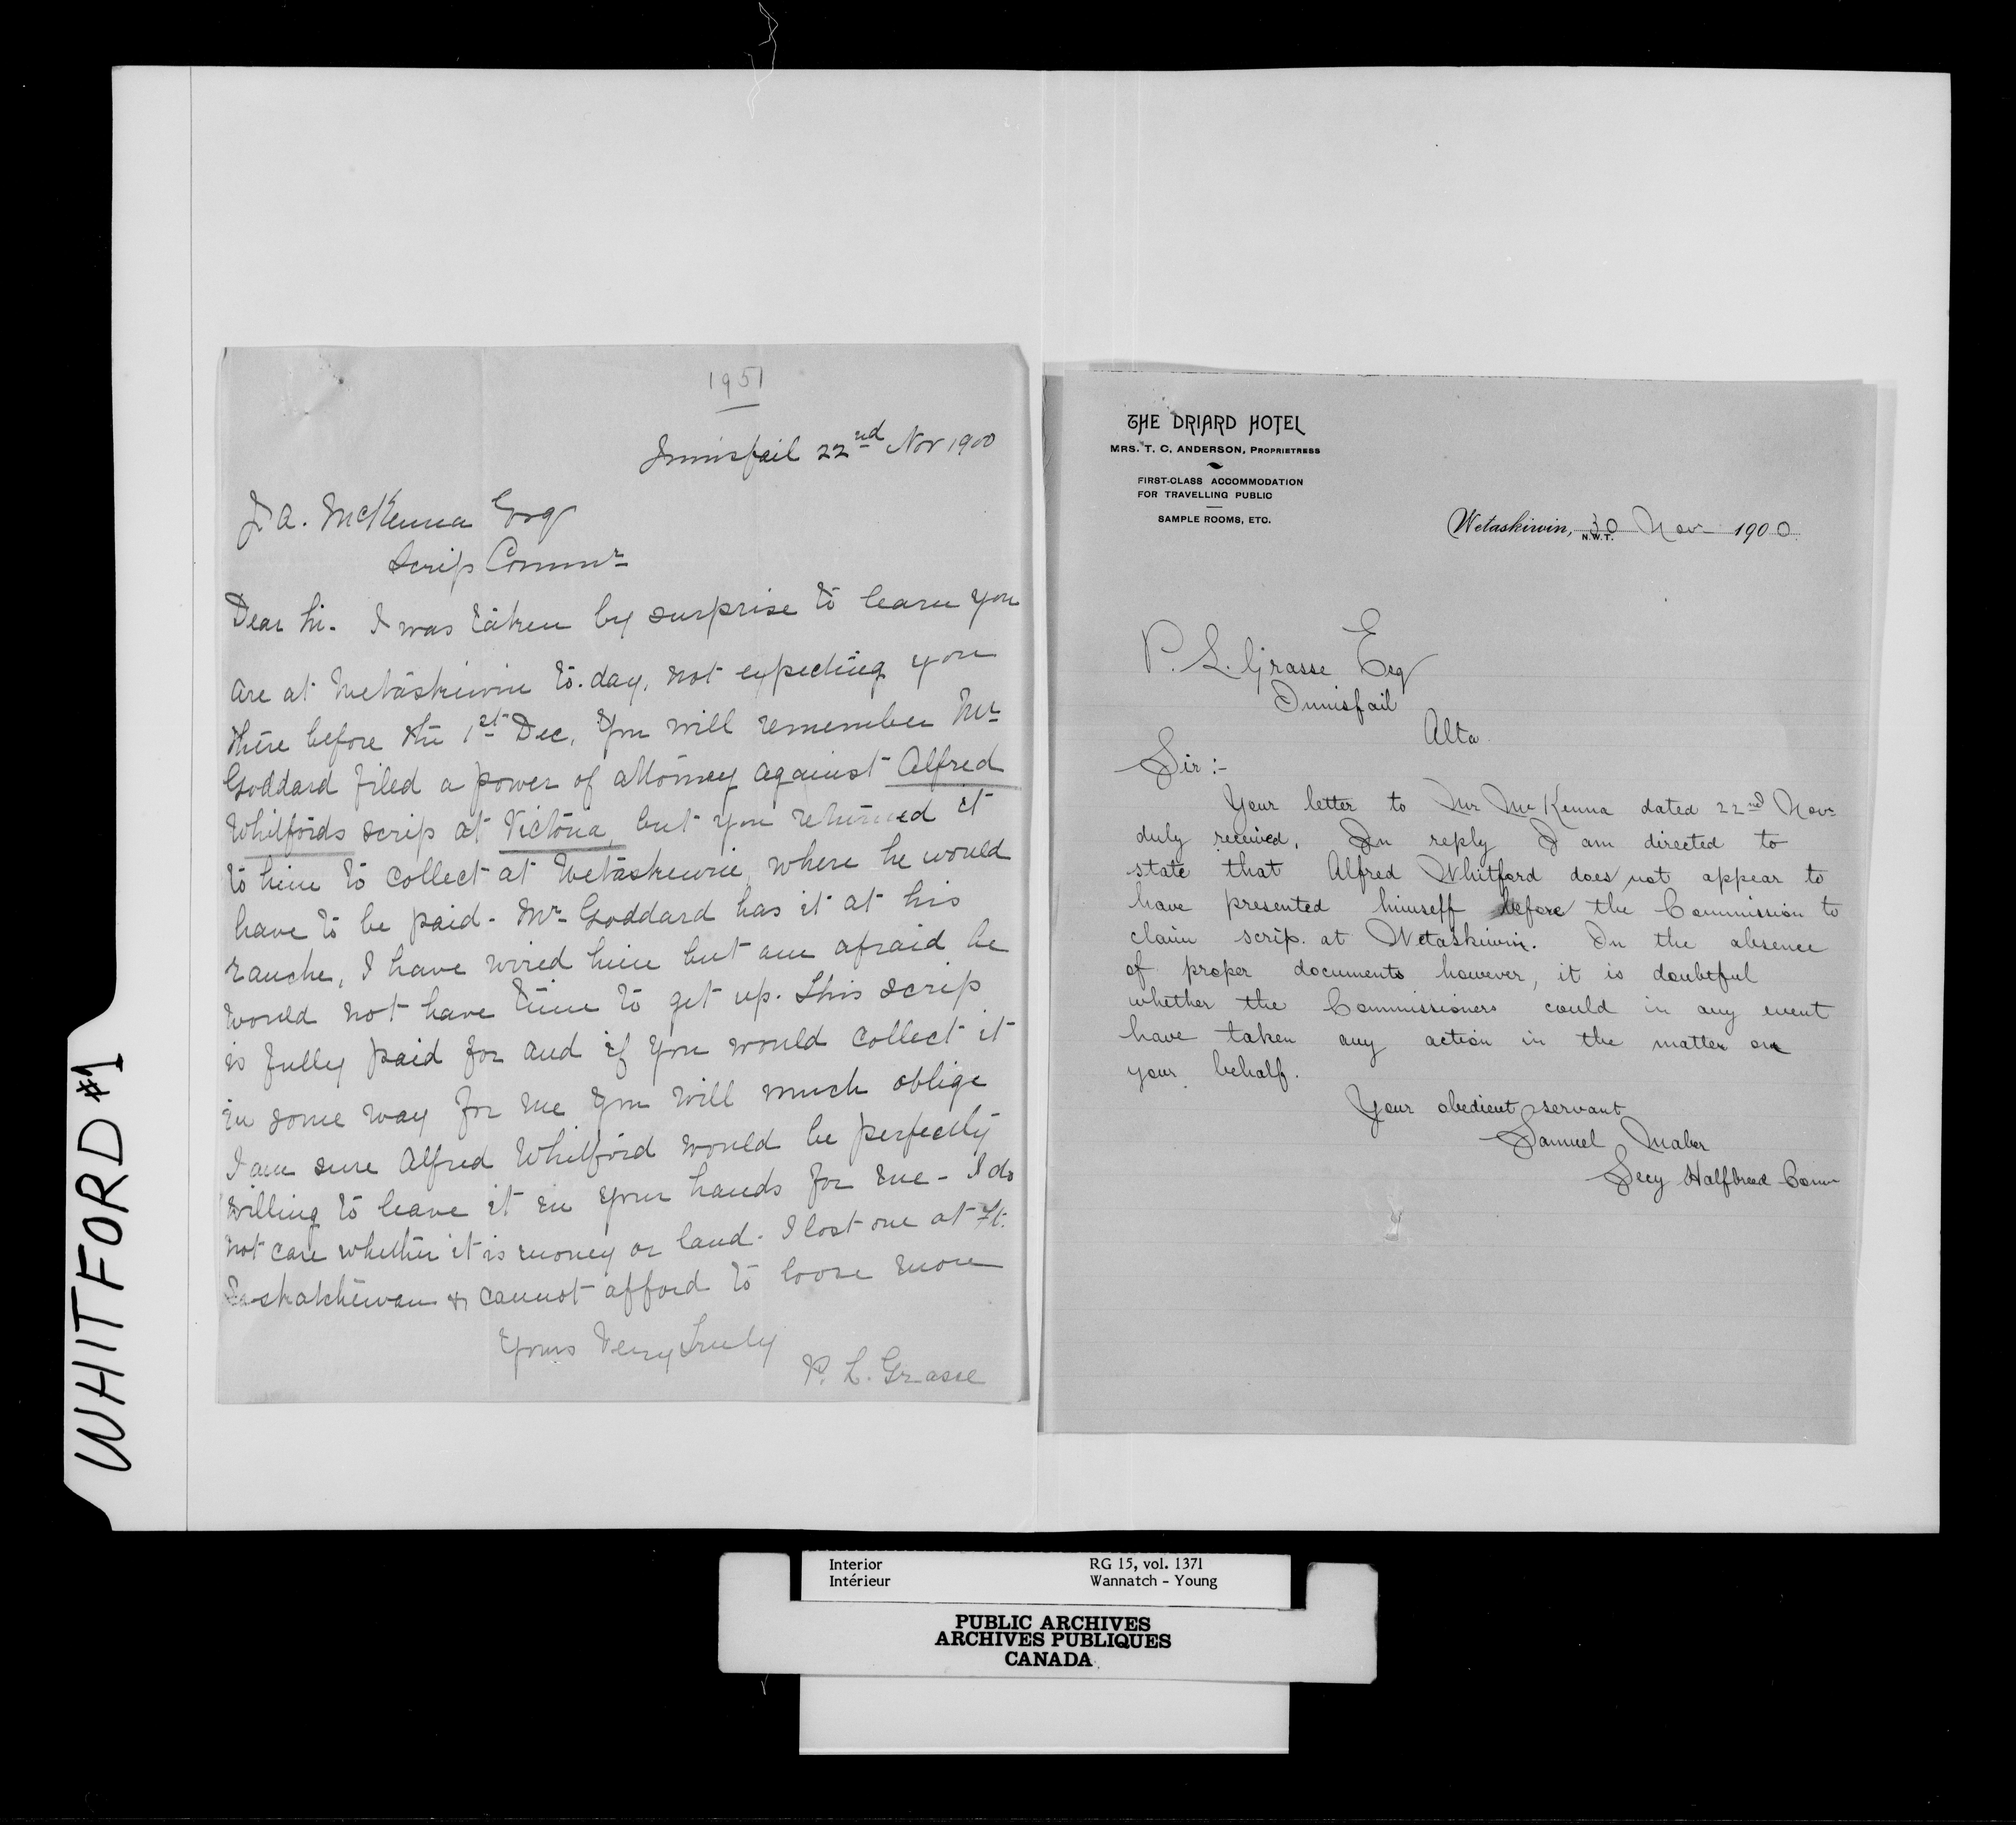 WHITFORD #1
1951
Innisfail 22nd Nov 1900
J. A. McKenna Esq
Scrip Commr
Dear Sir. I was taken by surprise to learn you
are at Wetaskiwin to-day, not expecting you
there before the 1st Dec, You will remember Mr
Goddard filed a power of attorney against Alfred
Whitfords scrip at Victoria, but you returned it
to him to collect at Wetaskiwin, where he would
have to be paid - Mr Goddard has it at his
ranche, I have wired him but am afraid he
would not have time to get up. This scrip
is fully paid for and if you would collect it
in some way for me you will much oblige
I am sure Alfred Whitford would be perfectly
willing to leave it in your hands for me - I do
not care whether it is money or land - I lost one at Ft.
Saskatchewan & cannot afford to loose more
Yours Very Truly
P. L. Grasse
THE DRIARD HOTEL
MRS. T. C. ANDERSON, PROPRIETRESS
FIRST-CLASS ACCOMMODATION
FOR TRAVELLING PUBLIC
SAMPLE ROOMS, ETC.
Wetaskiwin, N.W.T. 30 Nov 1900.
P. L. Grasse Esq
Innisfail
Alta.
Sir:-
Your letter to Mr McKenna dated 22nd Novr
duly received. In reply I am directed to
state that Alfred Whitford does not appear to
have presented himself before the Commission to
claim scrip at Wetaskiwin. In the absence
of proper documents however, it is doubtful
whether the Commissioners could in any event
have taken any action in the matter on
your behalf.
Your obedient servant
Samuel Maber
Secy Halfbreed Comn
Interior RG 15, vol. 1371
Intérieur Wannatch - Young
PUBLIC ARCHIVES
ARCHIVES PUBLIQUES
CANADA